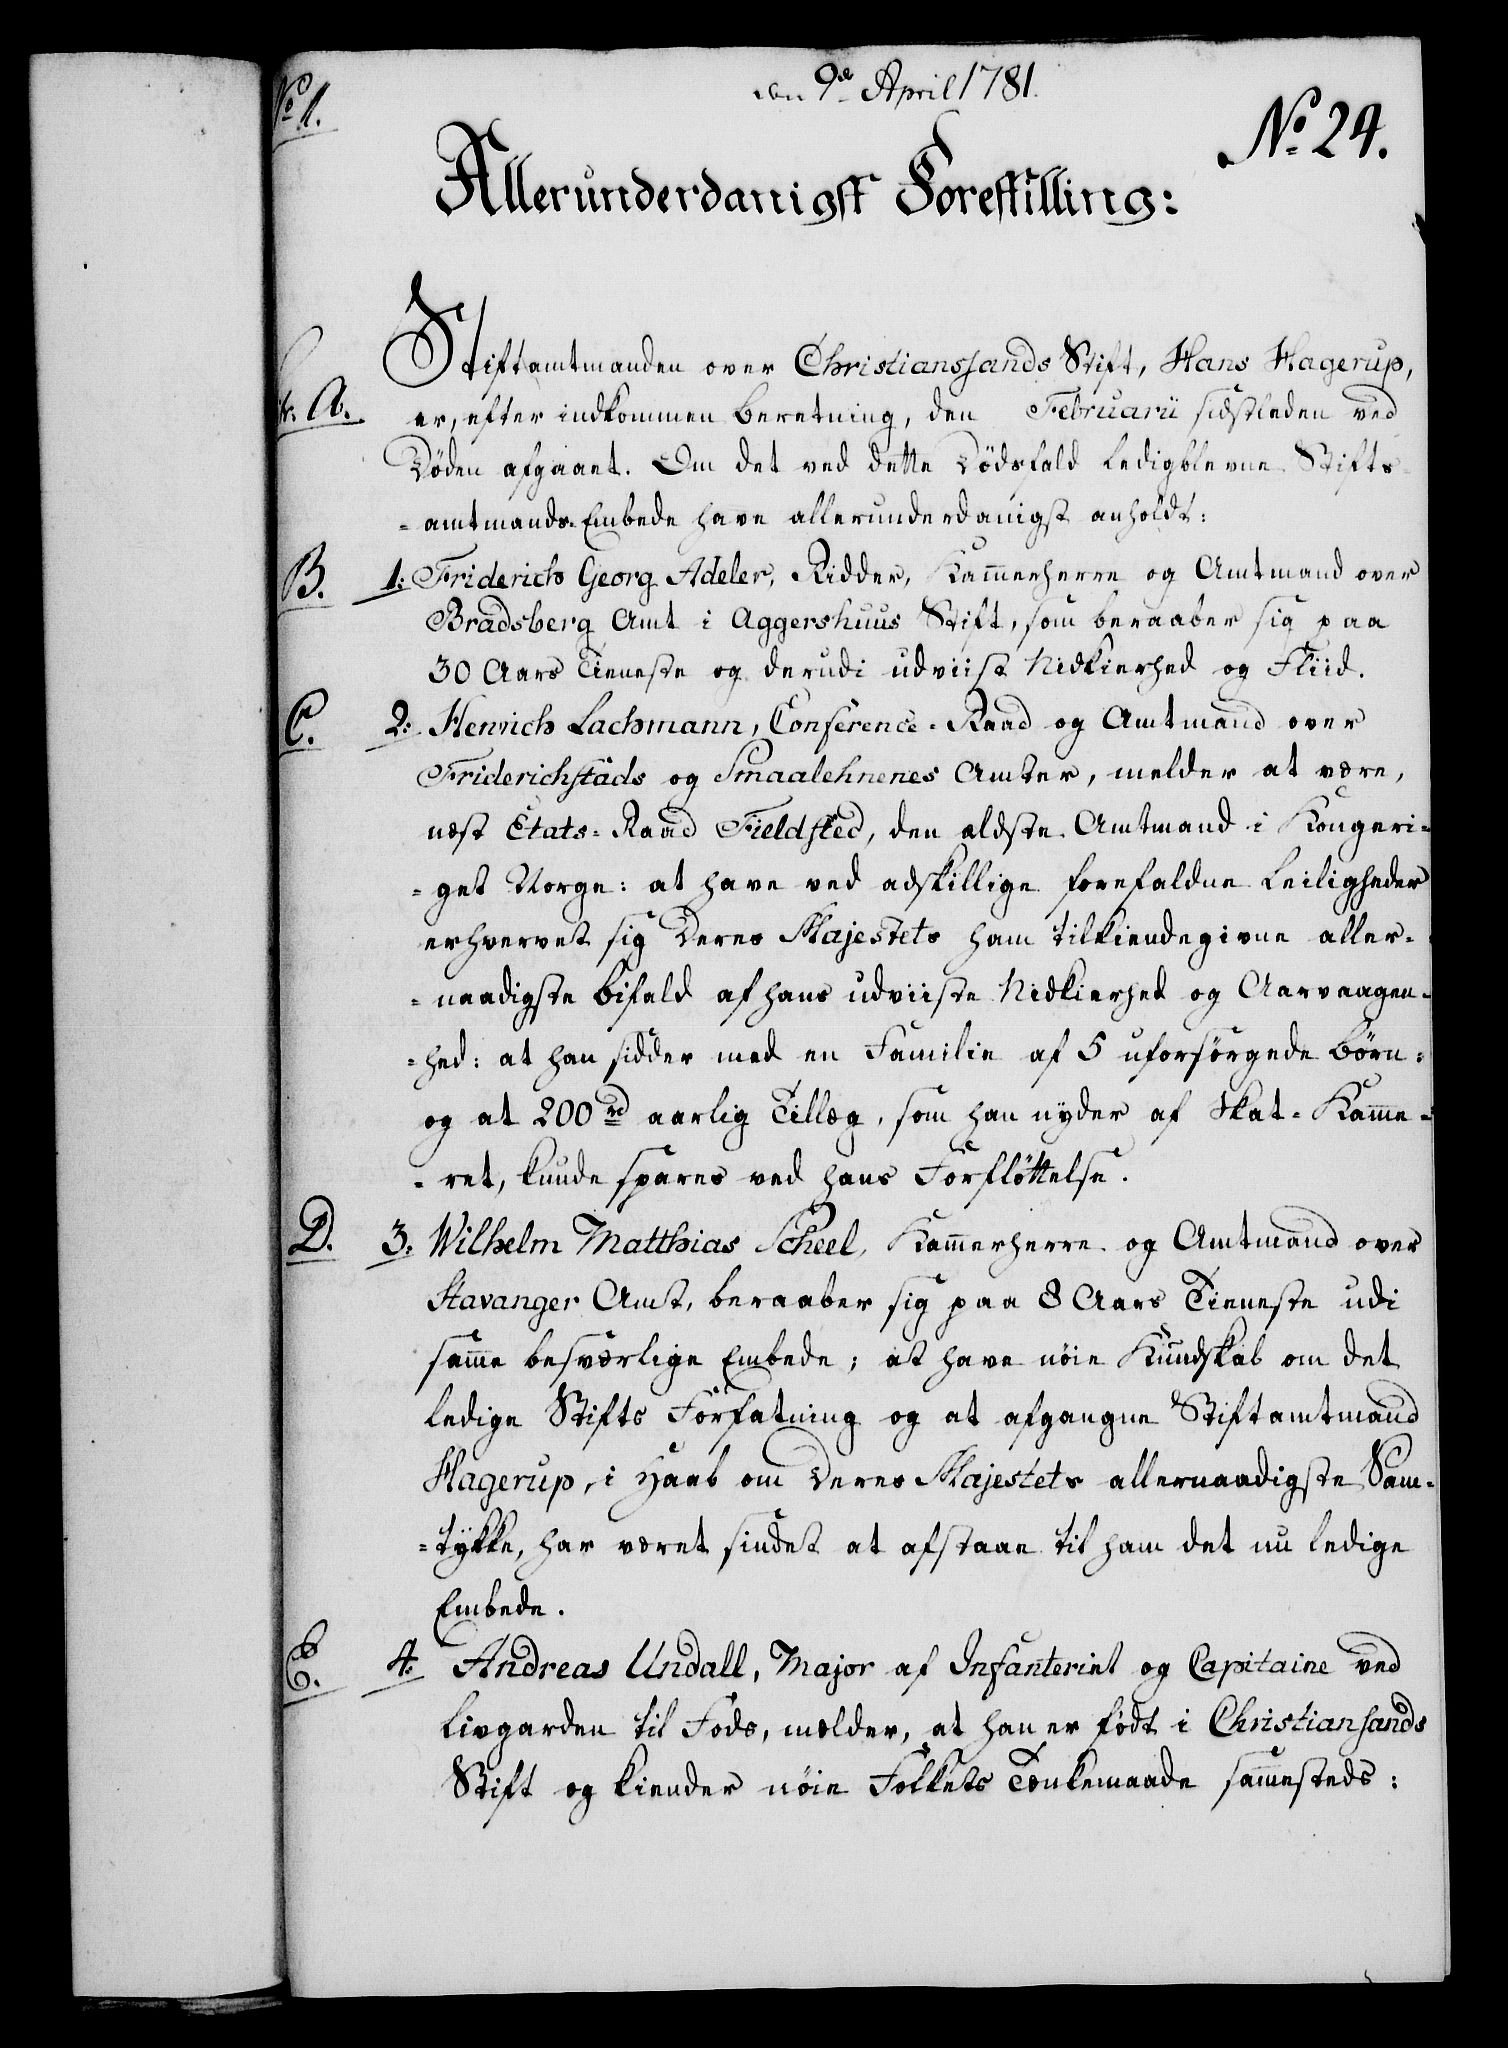 den 9de April 1781.
No 1.
No 24.
Allerunderdanigst Forestilling:
Stiftamtmanden over Christianssands Stift, Hans Hagerup,
A. er, efter indkommen beretning, den Februarii sidstleden ved
Døden afgaaet. Om det ved dette Dødsfald ledigblevne Stifts-
-amtmands-Embede have allerunderdanigst anholdt:
B. 1: Friderich Georg Adeler, Ridder, Kam̄erherre og Amtmand over
Bradsberg Amt i Aggershuus Stift, som beraaber sig paa
30 Aars Tieneste og derudi udviist Nidkierhed og Fliid.
C. 2: Henrich Lachmann, Conference-Raad og Amtmand over
Friderichstads og Smaalehnenes Amter, melder at være,
næst Etats-Raad Fieldsted, den ældste Amtmand i Kongeri-
-get Norge: at have ved adskillige forefaldne Leiligheder
erhvervet sig Deres Majestets ham tilkiendegivne aller-
-naadigste bifald af hans udviiste Nidkierhed og Aarvaagen-
-hed: at han sidder med en Familie af 5 uforsørgede børn:
og at 200 rd aarlig Tillæg, som han nyder af Skat-Kam̄e-
-ret, kunde spares ved hans Forfløttelse.
D. 3. Wilhelm Matthias Scheel, Kam̄erherre og Amtmand over
Stavanger Amt, beraaber sig paa 8 Aars Tieneste udi
sam̄e besværlige Embede; at have nøie Kundskab om det
ledige Stifts Forfatning og at afgangne Stiftamtmand
Hagerup, i Haab om Deres Majestets allernaadigste Sam-
-tykke, har været sindet at afstaae til ham det nu ledige
Embede.
E. 4. Andreas Undall, Major af Infanteriet og Capitaine ved
Livgarden til Fods, melder, at han er født i Christiansands
Stift og kiender nøie Folkets Tænkemaade sam̄esteds: